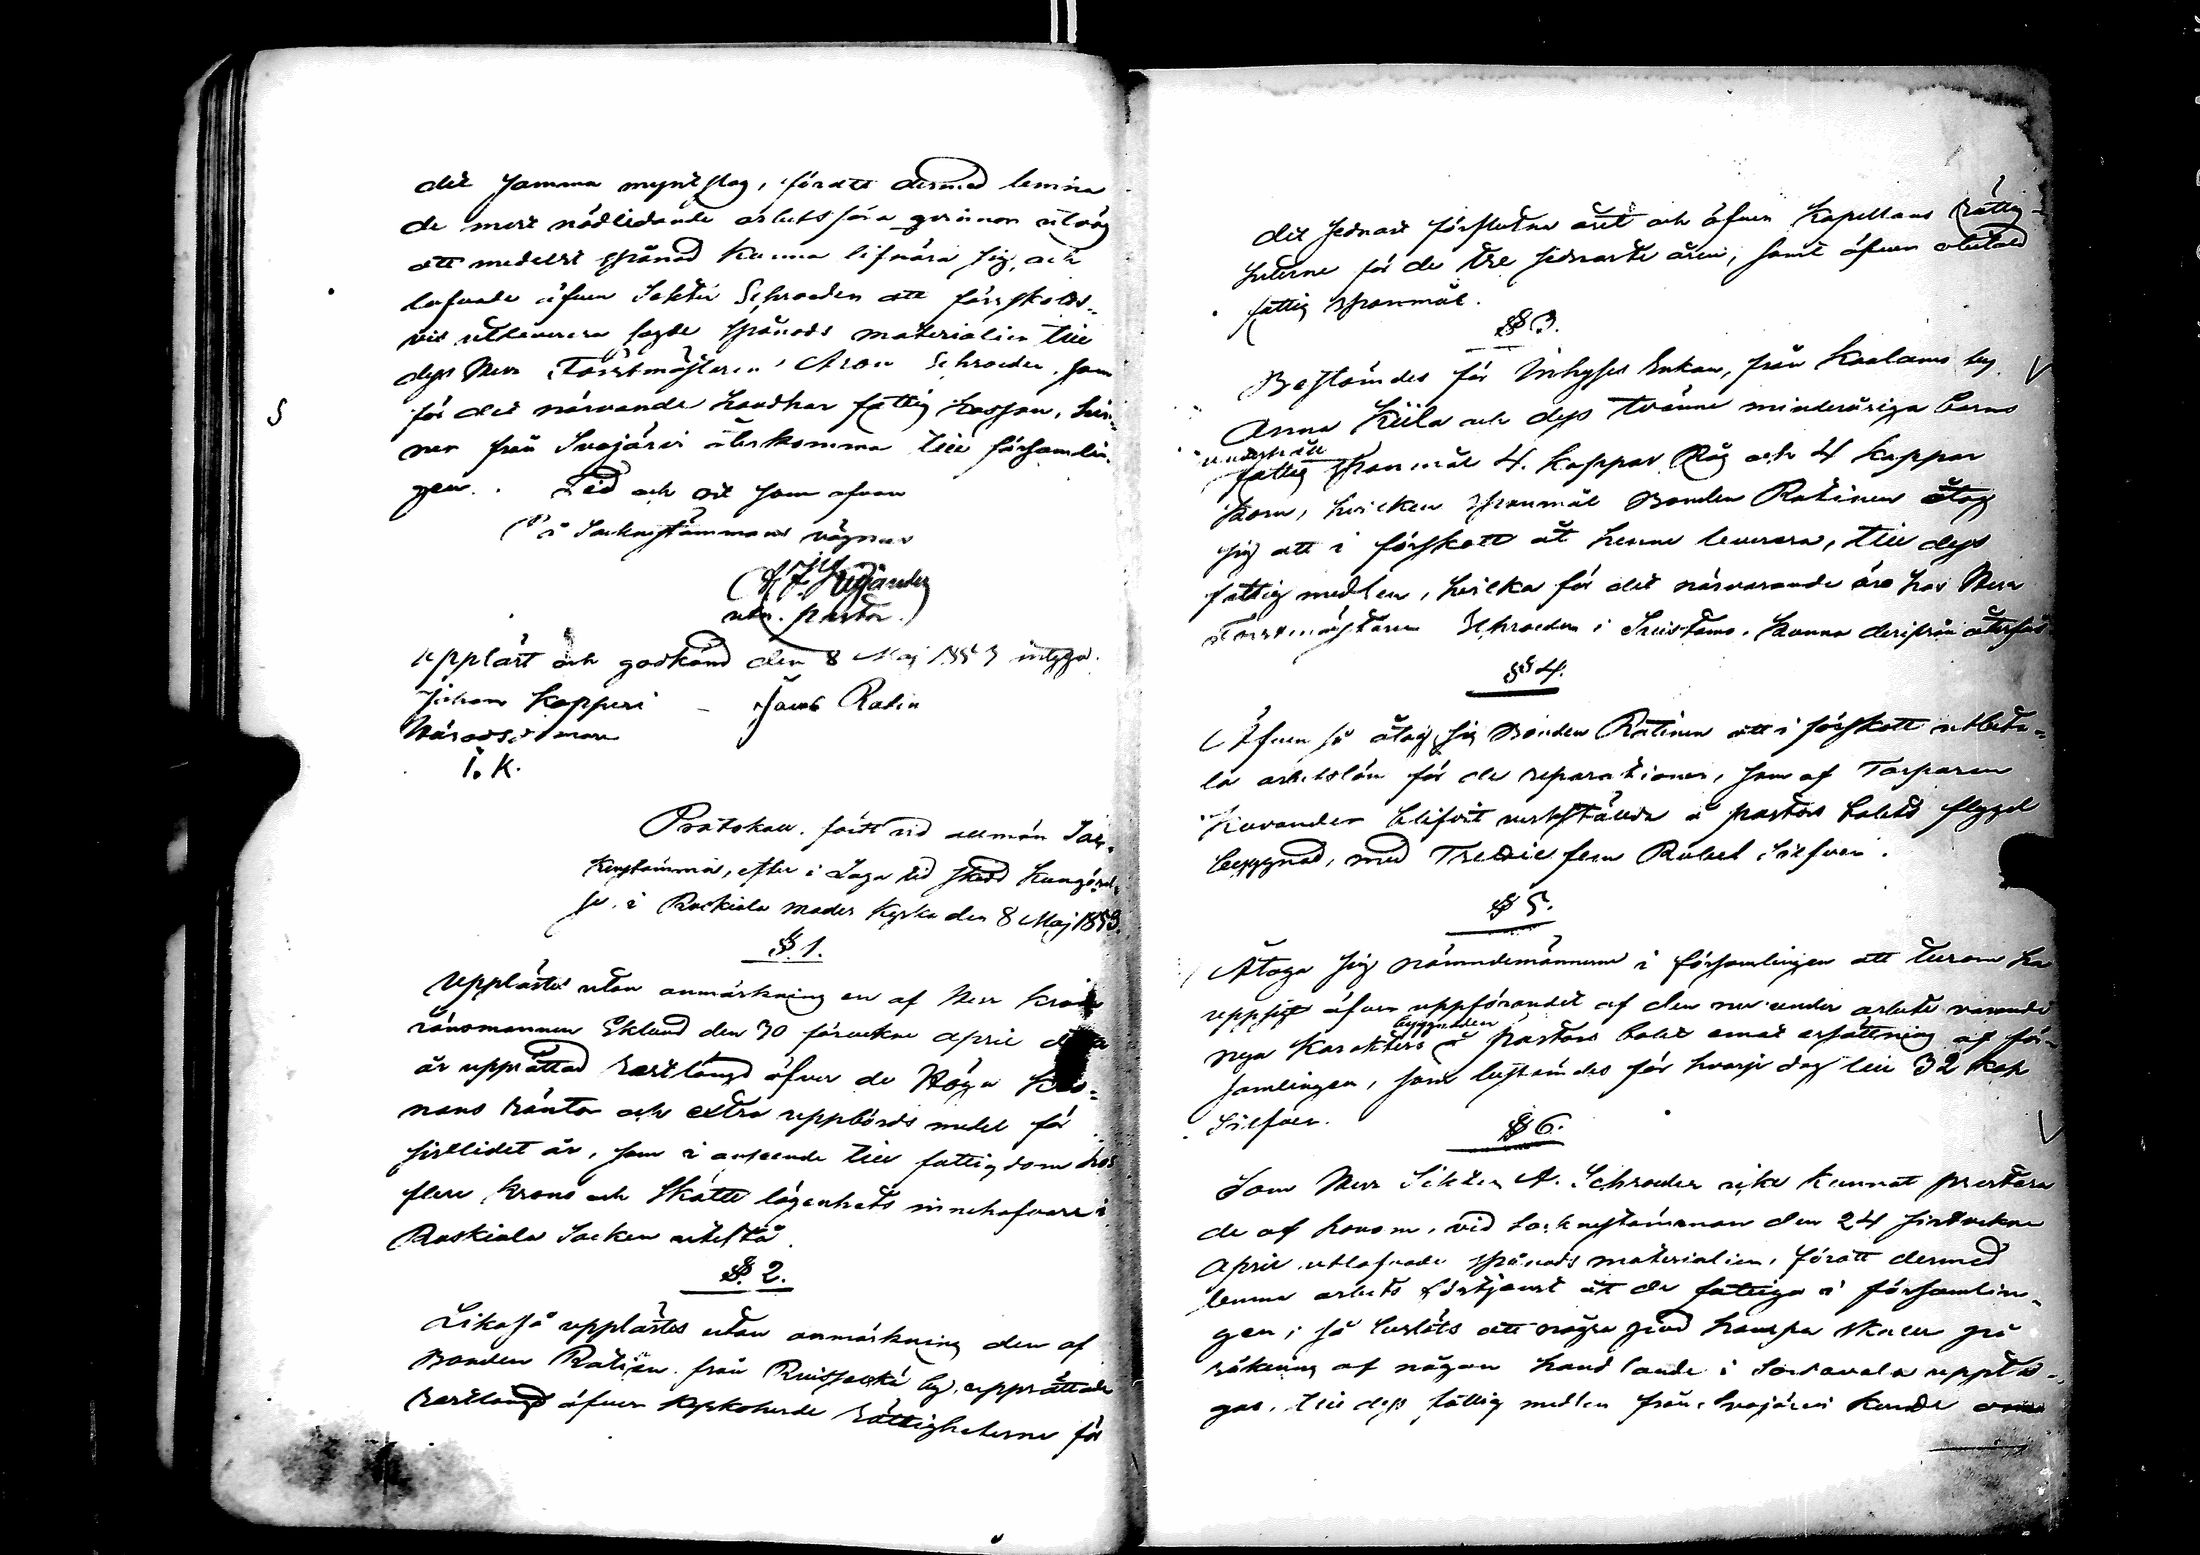 det samma myntslag, föratt dermed lemna
de mest nödlidande arbetsföra qvinnor utväg
att medelst spånad kunna lifnära sig, och
lofvade äfven Sekter Schroeder att förskotts-
vis utleverera sagde spånads materialier till
dess Herr Forstmästaren Aron Schroeder, som
för det närvande handhar fattig kassan, hin-
ner från Suojärvi återkomma till församlin-
gen. Tid och ort som ofvan
På Sockenstämmans vägnar
utn. pastor.
Uppläst och godkänd den 8 Maj 1853 intyga.
Johan Kapperi - Jacob Ratin
Häradsd
I. K.
Protokoll, fördt vid allmän Soc-
kenstämma, efter i Laga tid skedd kungörel-
se, i Ruskiala moder Kyrka den 8 Maj 1853.
§. 1.
Upplästes utan anmärkning en af Herr Krono
länsmannen Eklund den 30 förvekne April detta
år upprättad restlängd öfver de Höga Kro-
nans räntor och extra uppbörds medel för
sistlidet år, som i anseende till fattigdom hos
flere krono och skatte lägenhets innehafvare i
Ruskiala Socken utestå.
§. 2.
Likaså upplästes utan anmärkning den af
Bonden Ratinen från Ruissenki by, upprättade
restlängd öfver Kyrkoherde rättigheterne för
det sednast förflutna året och äfven Kapellans rättig-
heterne för de tre sednaste åren, samt äfven obetald
fattig spanmål.
§ 3.
Bestämdes för Inhyses Enkan, från Kaalamo by
Anna Kiila och dess tvänne minderåriga barns
underhåll
fattig spanmål 4. kappar Råg och 4 kappar
Korn, hvilken spanmål Bonden Ratinen åtog
sig att i förskott åt henne leverera, till dess
fattig medlen, hvilka för det närvarande äro hos Herr
Forstmästaren Schroeder i Suistamo, kunna derifrån återfås
§ 4.
Äfven så åtog sig Bonden Ratinen att i förskott utbeta-
la arbetslön för de reparationer, som af Torparen
Kavander blifvit verkställda å pastors bolets flygel
byggnad, med Tretie fem Rubel Silfver.
§ 5.
Åtoga sig nämndemännerne i församlingen att turom ha
uppsigt öfver uppförandet af den nu under arbete varande
byggnaden
nya Karakters å pastors bolet emot ersättning af för-
samlingen, som bestämdes för hvarje dag till 32 kop
Silfver.
§ 6.
Som Herr Sekter A. Schroeder icke kunnat prestera
de af honom, vid sockenstämman den 24 sistvekne
April utlofvade spånads materialier, föratt dermed
lemna arbets förtjenst åt de fattiga i församlin-
gen; så beslöts att några pud hampa skulle på
räkning af någon handlande i Sordavala uppta-
gas, till dess fattig medlen från Suojärvi kunde